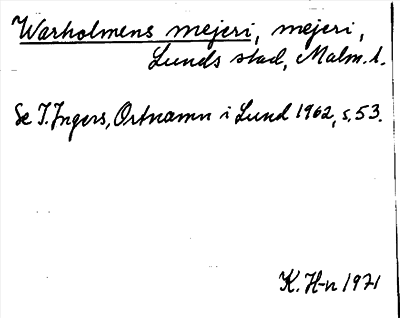 Warholmens mejeri, mejeri,
Lunds stad, Malm. l.
Se I. Ingers, Ortnamn i Lund 1962, s. 53.
K. H-n 1971